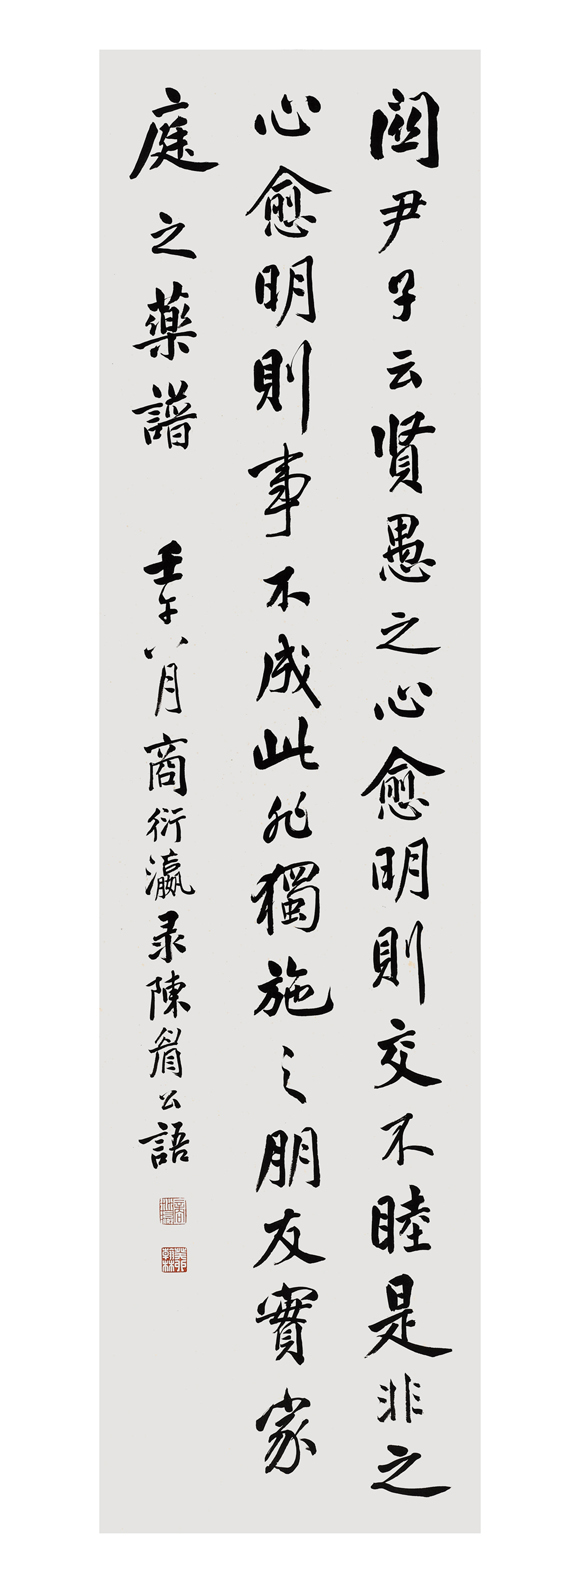 關尹子云賢愚之心愈明則交不睦是非之
心愈明則事不成此非獨施之朋友實家
庭之藥譜
壬午八月商衍瀛录陳眉公語
癸卯翰林